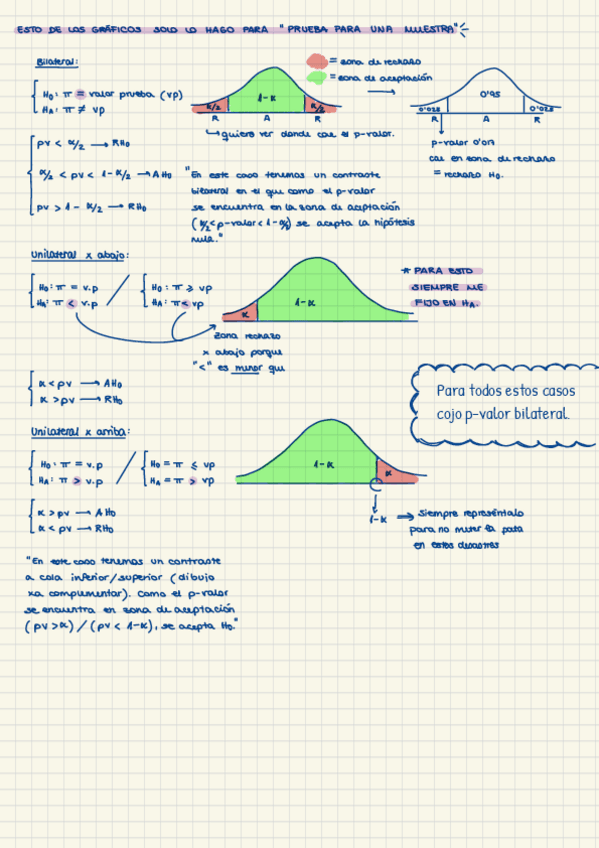 ESTO DE LOS GRÁFICOS SOLO LO HAGO PARA "PRUEBA PARA UNA MUESTRA"
Bilateral:
= zona de rechazo
= zona de aceptación
H₀: π = valor prueba (vp)
Hₐ: π ≠ vp
α/2 1-α α/2
R A R
0'025 0'95 0'025
R A R
↳ quiero ver donde cae el p-valor.
p-valor 0'017
cae en zona de rechazo
= rechazo H₀.
pv < α/2 → RH₀
α/2 < pv < 1-α/2 → AH₀
pv > 1-α/2 → RH₀
"En este caso tenemos un contraste
bilateral en el que como el p-valor
se encuentra en la zona de aceptación
(α/2 < p-valor < 1-α/2) se acepta la hipótesis
nula."
Unilateral x abajo:
H₀: π = v.p / H₀: π ≥ vp
Hₐ: π < v.p / Hₐ: π < vp
α 1-α
* PARA ESTO
SIEMPRE ME
FIJO EN Hₐ.
zona rechazo
x abajo porque
"<" es menor que
α < pv → AH₀
α > pv → RH₀
Para todos estos casos
cojo p-valor bilateral.
Unilateral x arriba:
H₀: π = v.p / H₀ = π ≤ vp
Hₐ: π > v.p / Hₐ = π > vp
1-α α
α > pv → AH₀
α < pv → RH₀
1-α ⇒ siempre represéntalo
para no meter la pata
en estos desastres
"En este caso tenemos un contraste
a cola inferior/superior (dibujo
xa complementar). Como el p-valor
se encuentra en zona de aceptación
(pv > α) / (pv < 1-α), se acepta H₀."